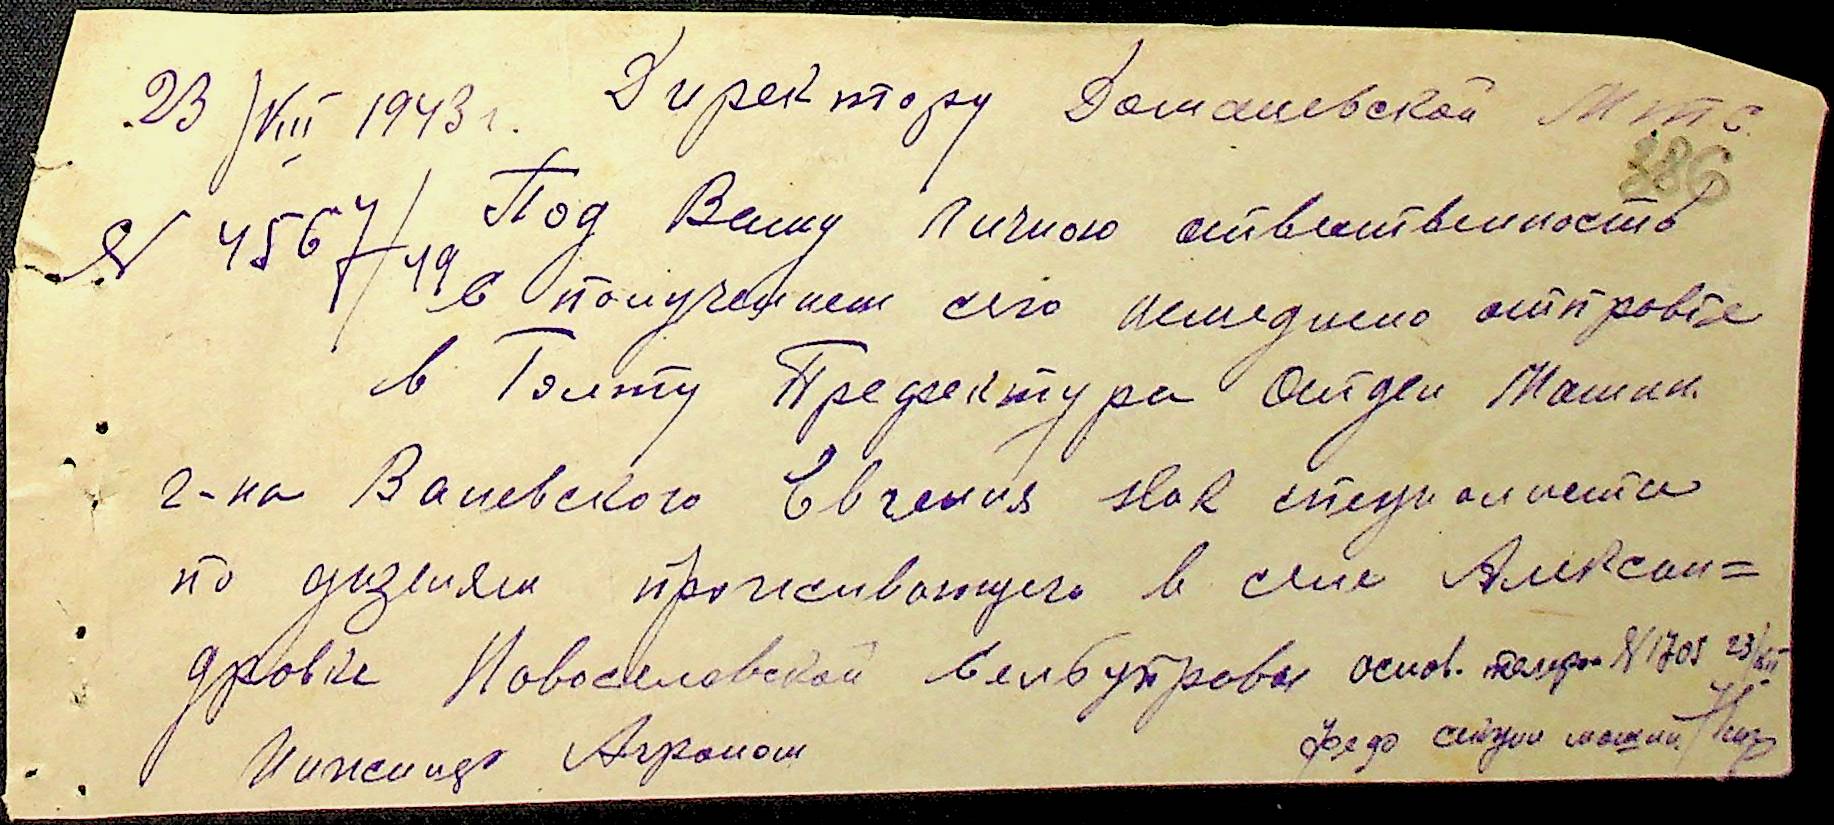 23/VIII 1943 г. Директору Доманевской МТС.
286
N 4567/19 Под Вашу личною отвественность
с получением сего немедлено отправте
в Голту Префектура Отдел Машин.
г-на Валевского Евгения как специалиста
по дизелям проживающего в селе Алексан=
дровке Новоселовской основ. телефон N 1705 23/VIII
Инженер Агроном секции машин